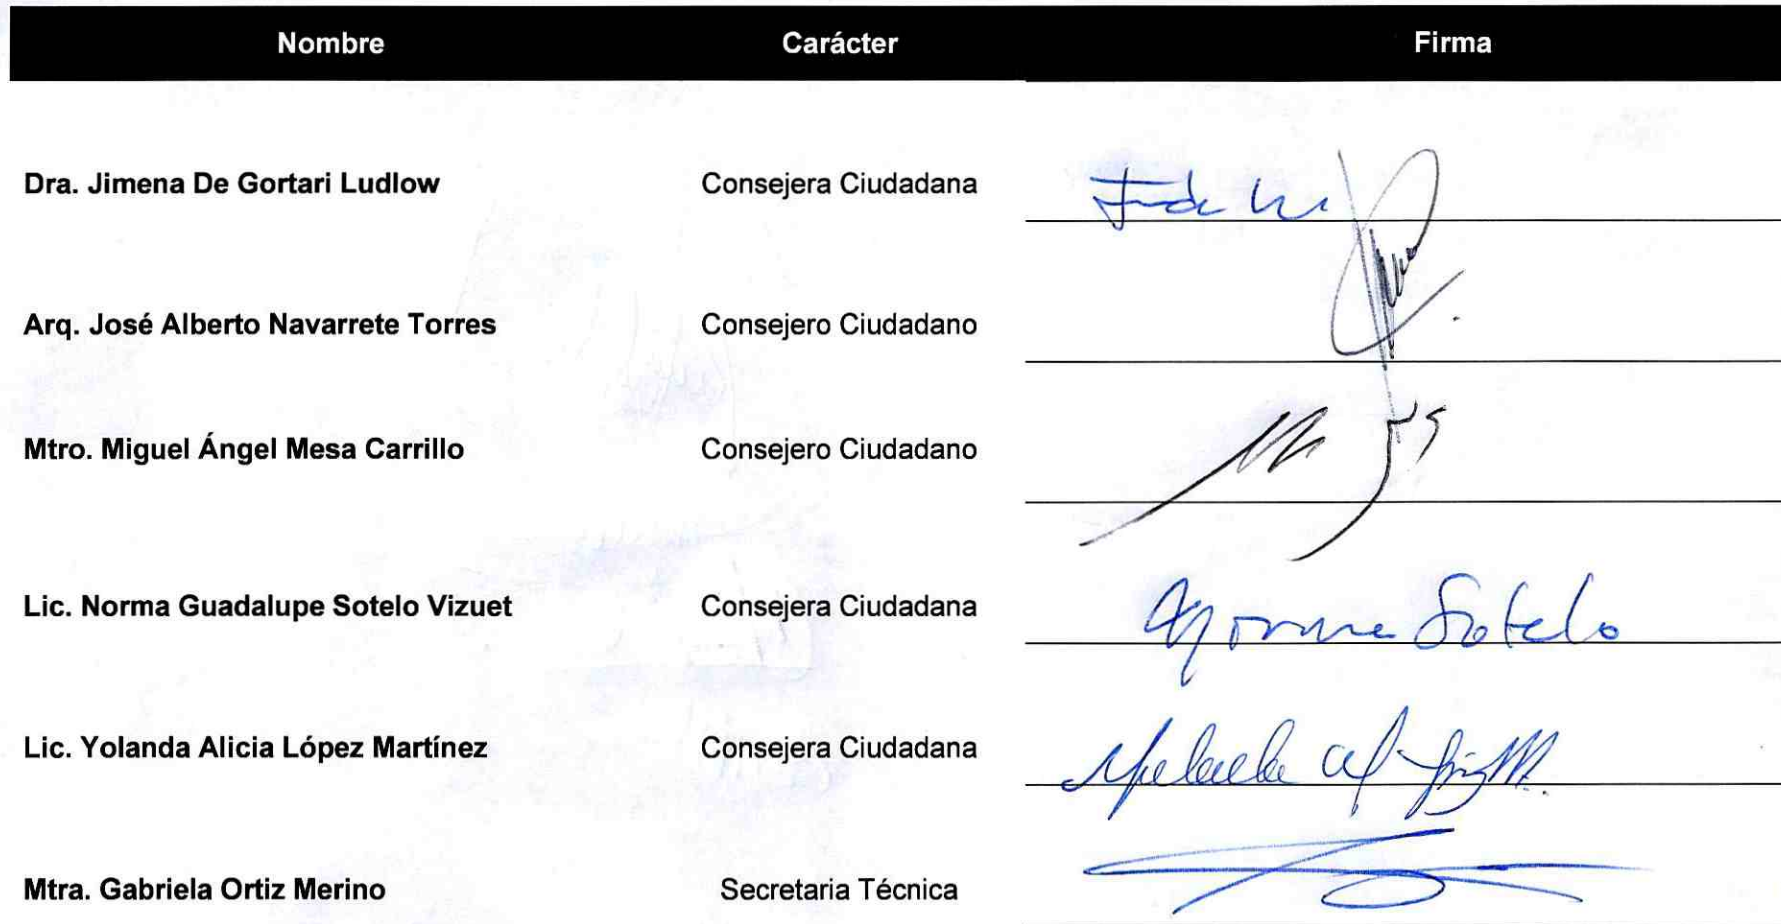 Nombre Carácter Firma
Dra. Jimena De Gortari Ludlow Consejera Ciudadana
Arq. José Alberto Navarrete Torres Consejero Ciudadano
Mtro. Miguel Ángel Mesa Carrillo Consejero Ciudadano
Lic. Norma Guadalupe Sotelo Vizuet Consejera Ciudadana Norma Sotelo
Lic. Yolanda Alicia López Martínez Consejera Ciudadana
Mtra. Gabriela Ortiz Merino Secretaria Técnica